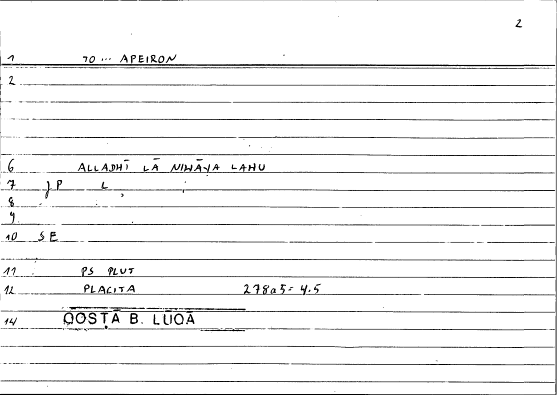 2
1 TO ... APEIRON
2
6 ALLADHĪ LĀ NIHĀYA LAHU
7 J P L
8
9
10 S E
11 PS PLUT
12 PLACITA 278a5 = 4.5
14 QOSṬĀ B. LŪQĀ